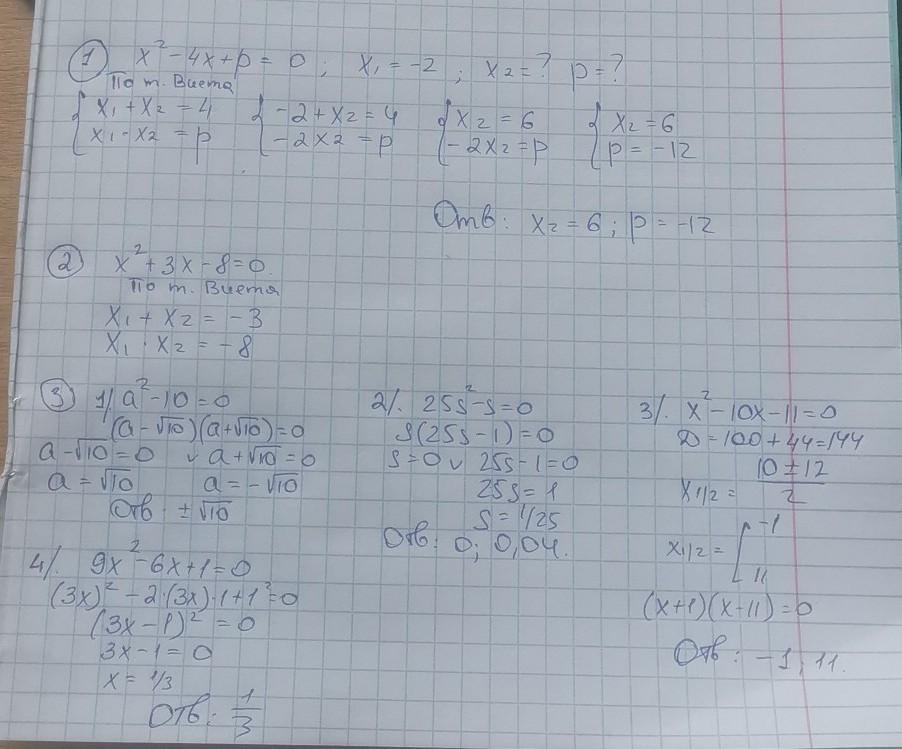 ① x² - 4x + p = 0 ; x₁ = -2 ; x₂ = ? p = ?
По т. Виета
{ x₁ + x₂ = 4 { -2 + x₂ = 4 { x₂ = 6 { x₂ = 6
{ x₁ · x₂ = p { -2x₂ = p { -2x₂ = p { p = -12
Отв: x₂ = 6 ; p = -12
② x² + 3x - 8 = 0.
По т. Виета
x₁ + x₂ = -3
x₁ · x₂ = -8
③ 1/. a² - 10 = 0
(a - √10)(a + √10) = 0
a - √10 = 0 v a + √10 = 0
a = √10 a = -√10
Отв ± √10
2/. 25s² - s = 0
s(25s - 1) = 0
s = 0 v 25s - 1 = 0
25s = 1
s = 1/25
Отв: 0; 0,04.
3/. x² - 10x - 11 = 0
D = 100 + 44 = 144
x₁/₂ = (10 ± 12)/2
x₁/₂ = [ -1
11
(x + 1)(x - 11) = 0
Отв: -1, 11.
4/. 9x² - 6x + 1 = 0
(3x)² - 2·(3x)·1 + 1² = 0
(3x - 1)² = 0
3x - 1 = 0
x = 1/3
Отв: 1/3